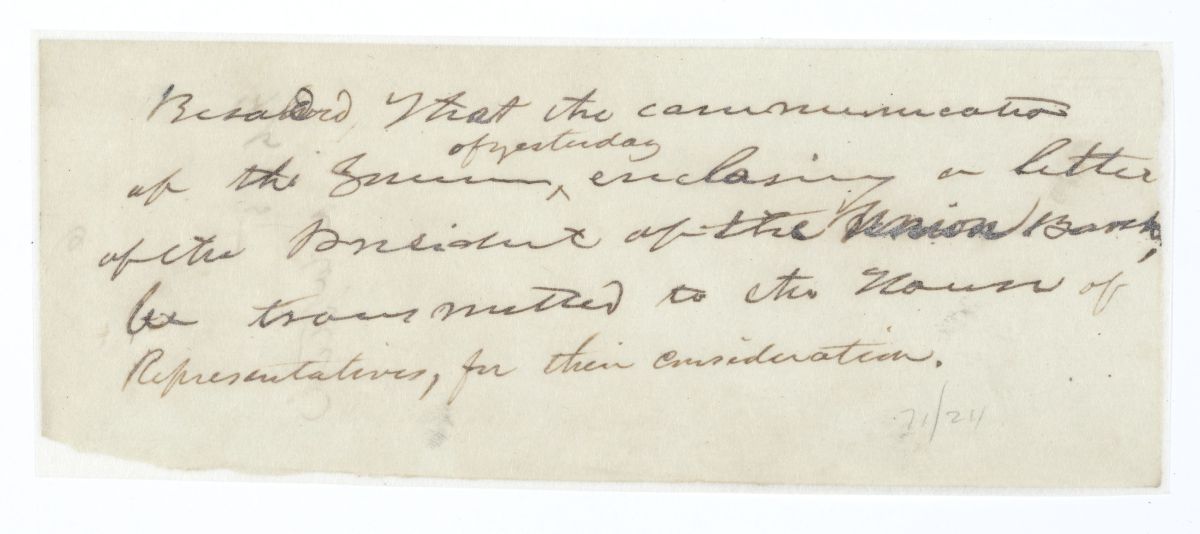 Resolved, That the communication
of yesterday
of the enclosing a letter
of the President of the Union Bank,
be transmitted to the House of
Representatives, for their consideration.
71/24